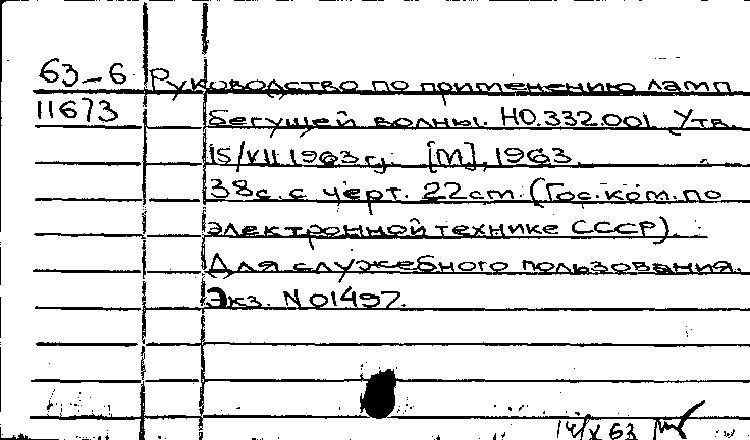 63-6 Руководство по применению ламп
11673 бегущей волны. НО.332.001. Утв.
15/VII 1963 г. [М], 1963.
38с. с черт. 22 см. (Гос. ком. по
электронной технике СССР).
Для служебного пользования.
Экз. N 01497.
14/X 63